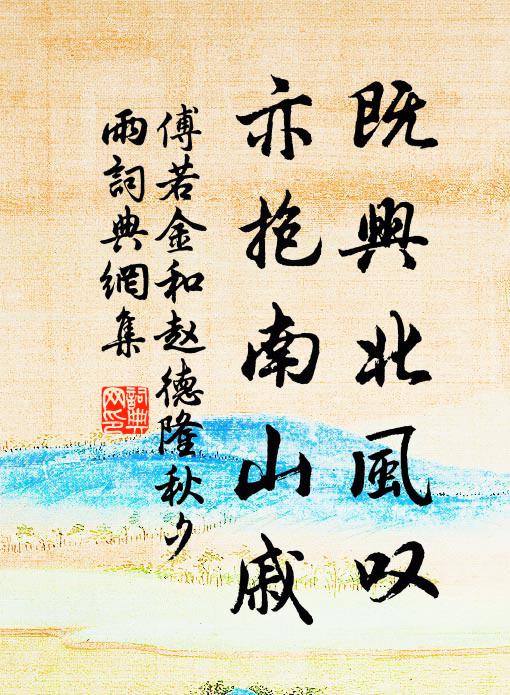 既興北風叹
亦抱南山戚
傅若金和赵德隆秋夕
雨詞典網集
詞典
网印